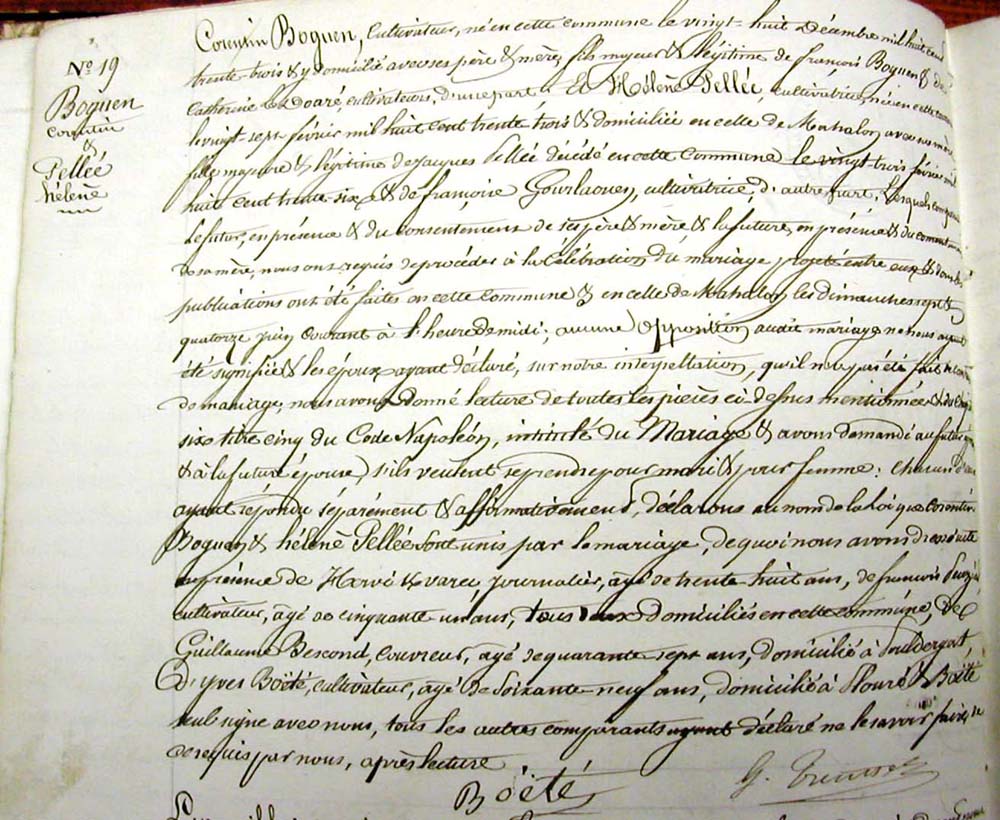 Nº 19
Boguen
corentin
&
Pellée
hélène
Corentin Boguen, Cultivateur, né en cette commune le vingt-huit Décembre mil huit cent
trente-trois & y domicilié avec ses père & mère, fils majeur & légitime de françois Boguen & de
Catherine Le Doaré, cultivateurs, d'une part ; Et Hélène Pellée, cultivatrice, née en cette
le vingt-sept février mil huit cent trente trois & domiciliée en celle de Mahalon avec sa mère
fille majeure & légitime de Jacques Pellée décédé en cette Commune le vingt-trois février mil
huit cent trente-six & de françoise Gourlaouen, cultivatrice, d'autre part. Lesquels
le futur, en présence & du consentement de ses père & mère & la future, en présence & du consentement
de sa mère, nous ont requis de procéder à la Célébration du mariage projeté entre eux & dont les
publications ont été faites en cette commune & en celle de Mahalon les dimanches sept &
quatorze juin courant à l'heure de midi ; aucune opposition audit mariage ne nous ayant
été signifiée & les époux ayant déclaré, sur notre interpellation, qu'il n'a pas été fait de contrat
de mariage, nous avons donné lecture de toutes les pièces ci-dessus mentionnées & du
six titre cinq du Code Napoléon, intitulé du Mariage & avons demandé au futur
& à la future épouse s'ils veulent se prendre pour mari & pour femme : chacun d'eux
ayant répondu séparément & affirmativement, déclarons au nom de la loi que Corentin
Boguen & hélène Pellée sont unis par le mariage, de quoi nous avons dressé acte
en présence de Hervé Kvarec, journalier, âgé de trente huit ans, de françois
cultivateur, âgé de cinquante un ans, tous deux domiciliés en cette commune, De
Guillaume Bescond, couvreur, âgé de quarante-sept ans, domicilié à Pouldergat,
D'Yves Boëté, cultivateur, âgé de Soixante-neuf ans, domicilié à Plouré & Boëté
seul signe avec nous, tous les autres comparants ayant déclaré ne le savoir faire, de
ce requis par nous, après lecture.
Boëté